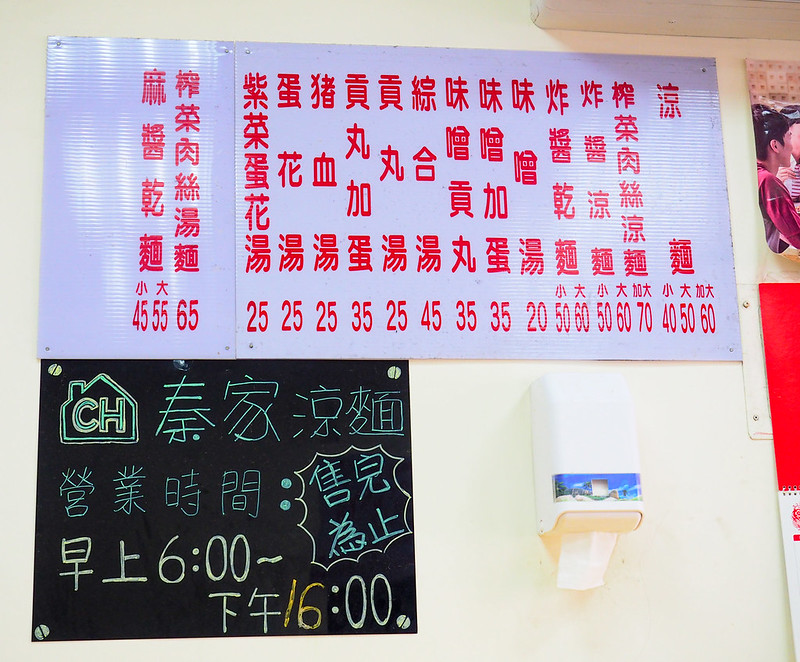 涼麵
小 大 加大
40 50 60
榨菜肉絲涼麵
炸醬涼麵
小 大 加大
50 60 70
炸醬乾麵
小 大
50 60
味噌湯
20
味噌加蛋
35
味噌貢丸
35
綜合湯
45
貢丸湯
25
貢丸加蛋
35
猪血湯
25
蛋花湯
25
紫菜蛋花湯
25
榨菜肉絲湯麵
65
麻醬乾麵
小 大
45 55
CH 秦家涼麵
營業時間：
售完
為止
早上6:00~
下午16:00